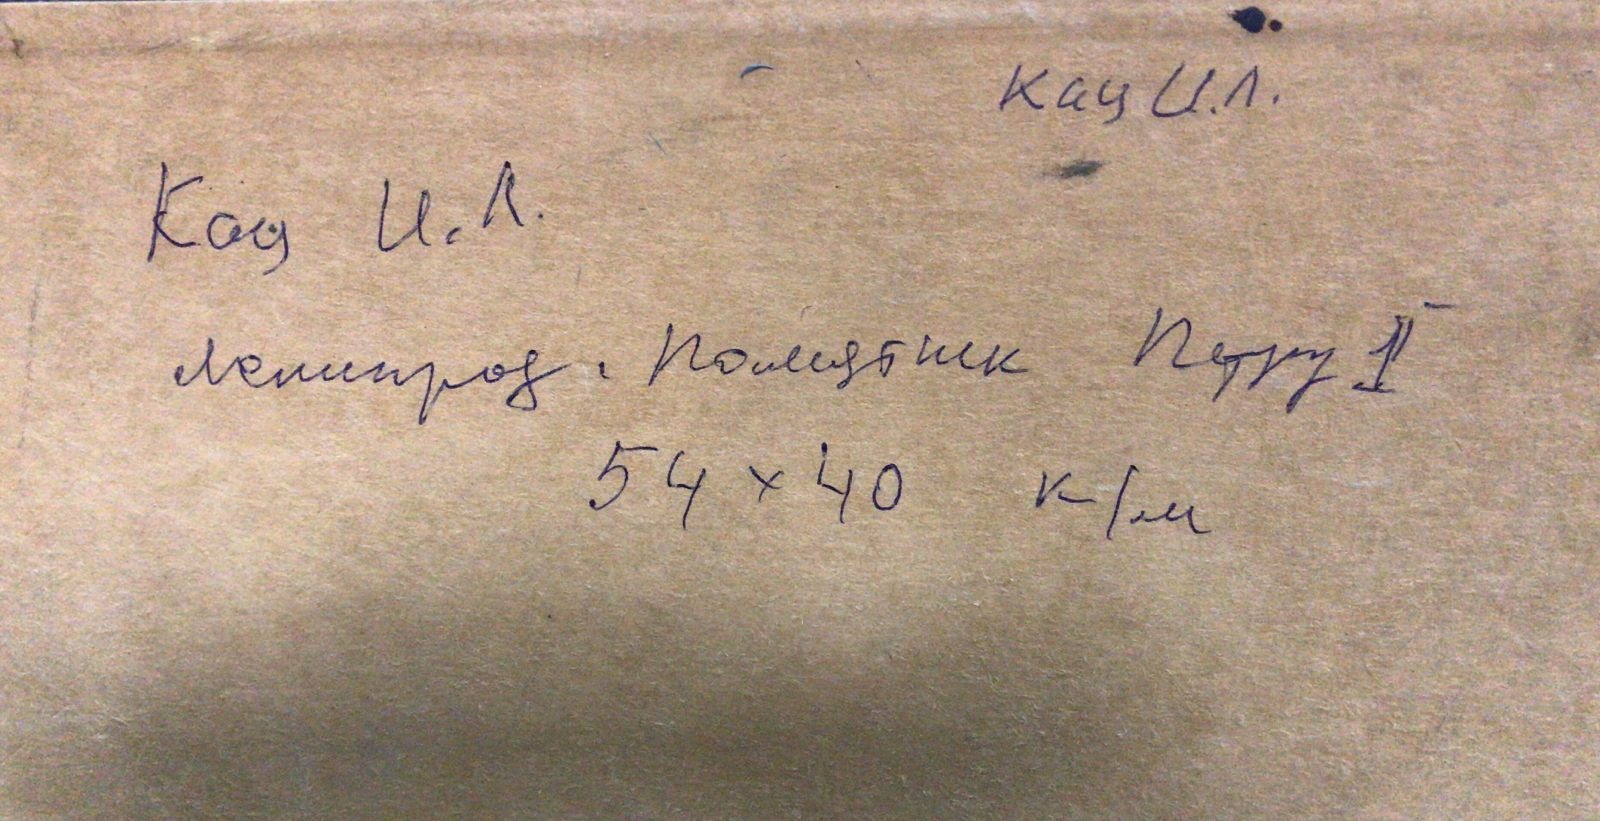 Кац И.Л.
Кац И.Л.
Ленинград. Памятник Петру I
54 x 40 к/м